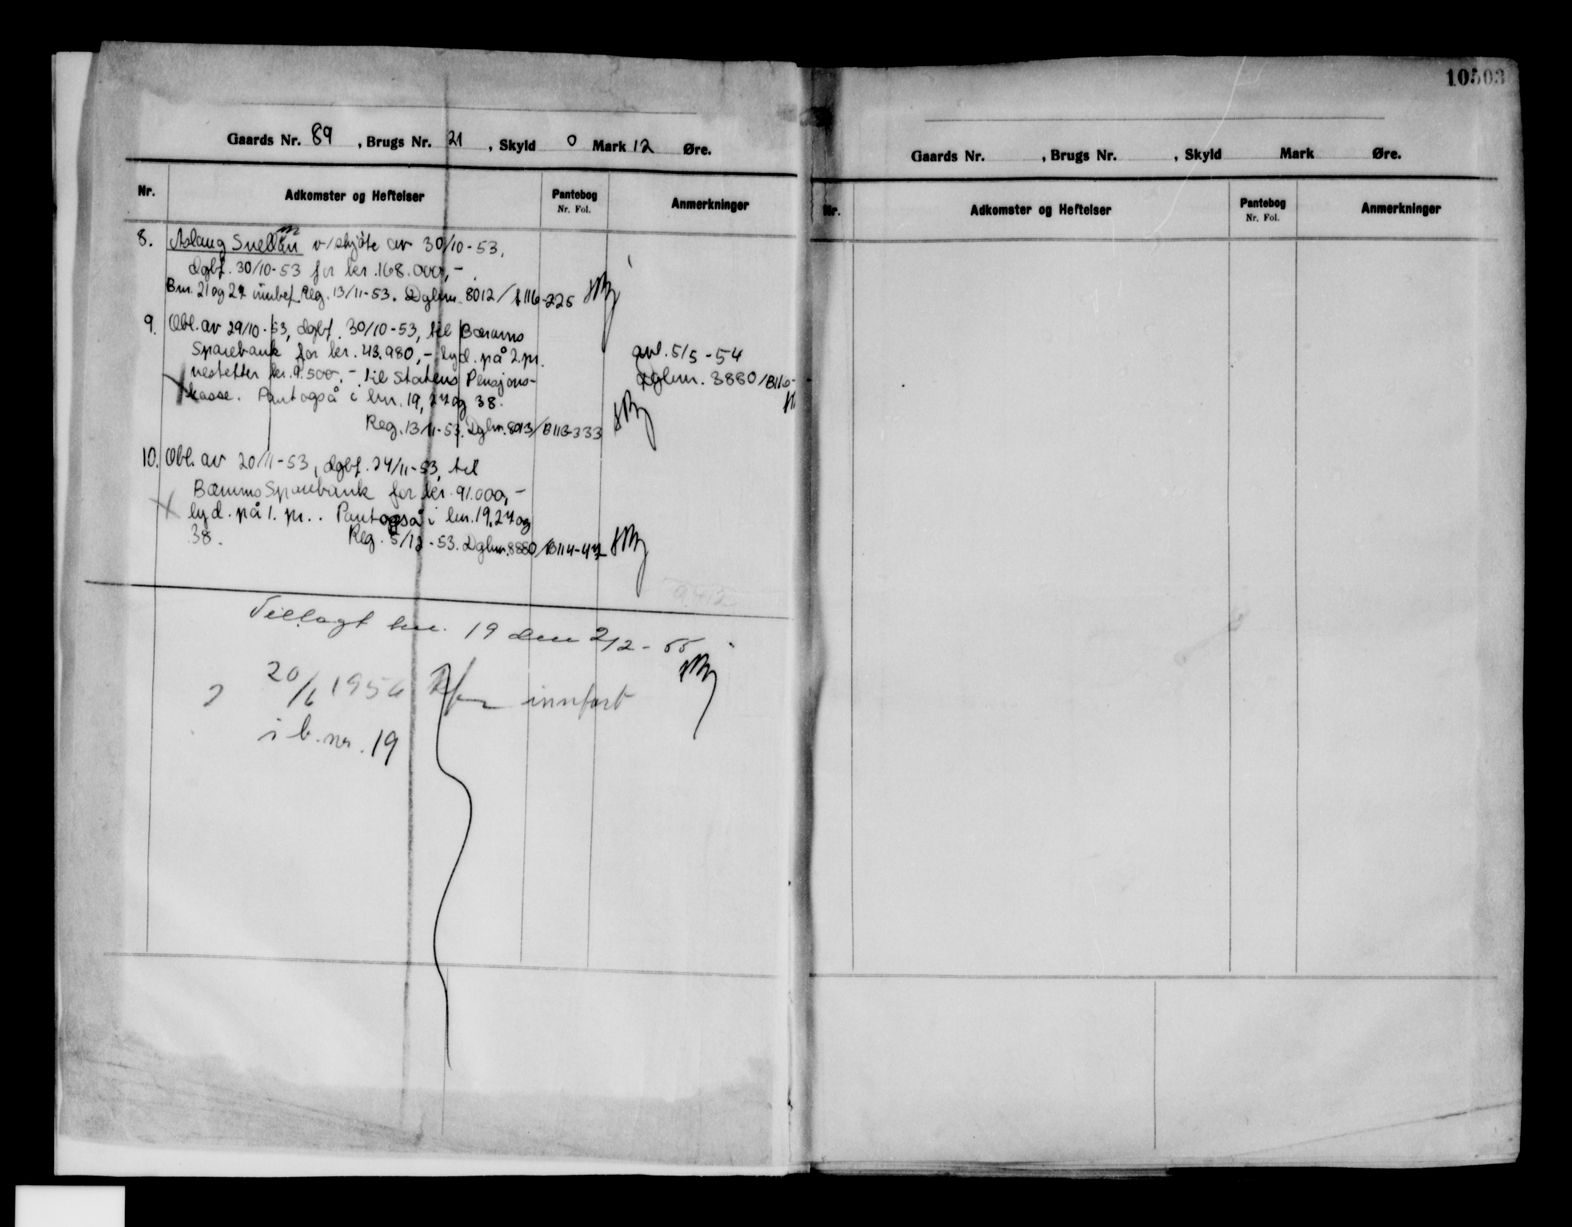 10503
Gaards Nr. 89, Brugs Nr. 21, Skyld 0 Mark 12 Øre.
Nr. Adkomster og Heftelser Pantebog Nr. Fol. Anmerkninger
8. Aslaug v/skjøte av 30/10-53,
dgbf. 30/10-53 for kr. 168.000,-.
Bnr. 21 og 27 Reg. 13/11-53. Dgbnr. 8012/A116-225
9. Obl. av 29/10-53, dgbf. 30/10-53, til Bærums
Sparebank for kr. 43.980,- lyd. på 2. pr.
nestetter kr. 9.500,- til Statens Pensjons-
kasse. Pant også i bnr. 19, 27 og 38.
Reg. 13/11-53. Dgbnr. 8013/B113-333
avl. 5/5-54
Dgbnr. 3880/B116-
10. Obl. av 20/11-53, dgbf. 24/11-53, til
Bærums Sparebank for kr. 91.000,-
lyd. på 1. pr.. Pant også i bnr. 19, 27 og
38. Reg. 5/12-53. Dgbnr. 8880/B114-47
Tillagt bnr. 19 den 2/2-55
20/6 1956 innført
i b.nr. 19
Gaards Nr. , Brugs Nr. , Skyld Mark Øre.
Nr. Adkomster og Heftelser Pantebog Nr. Fol. Anmerkninger